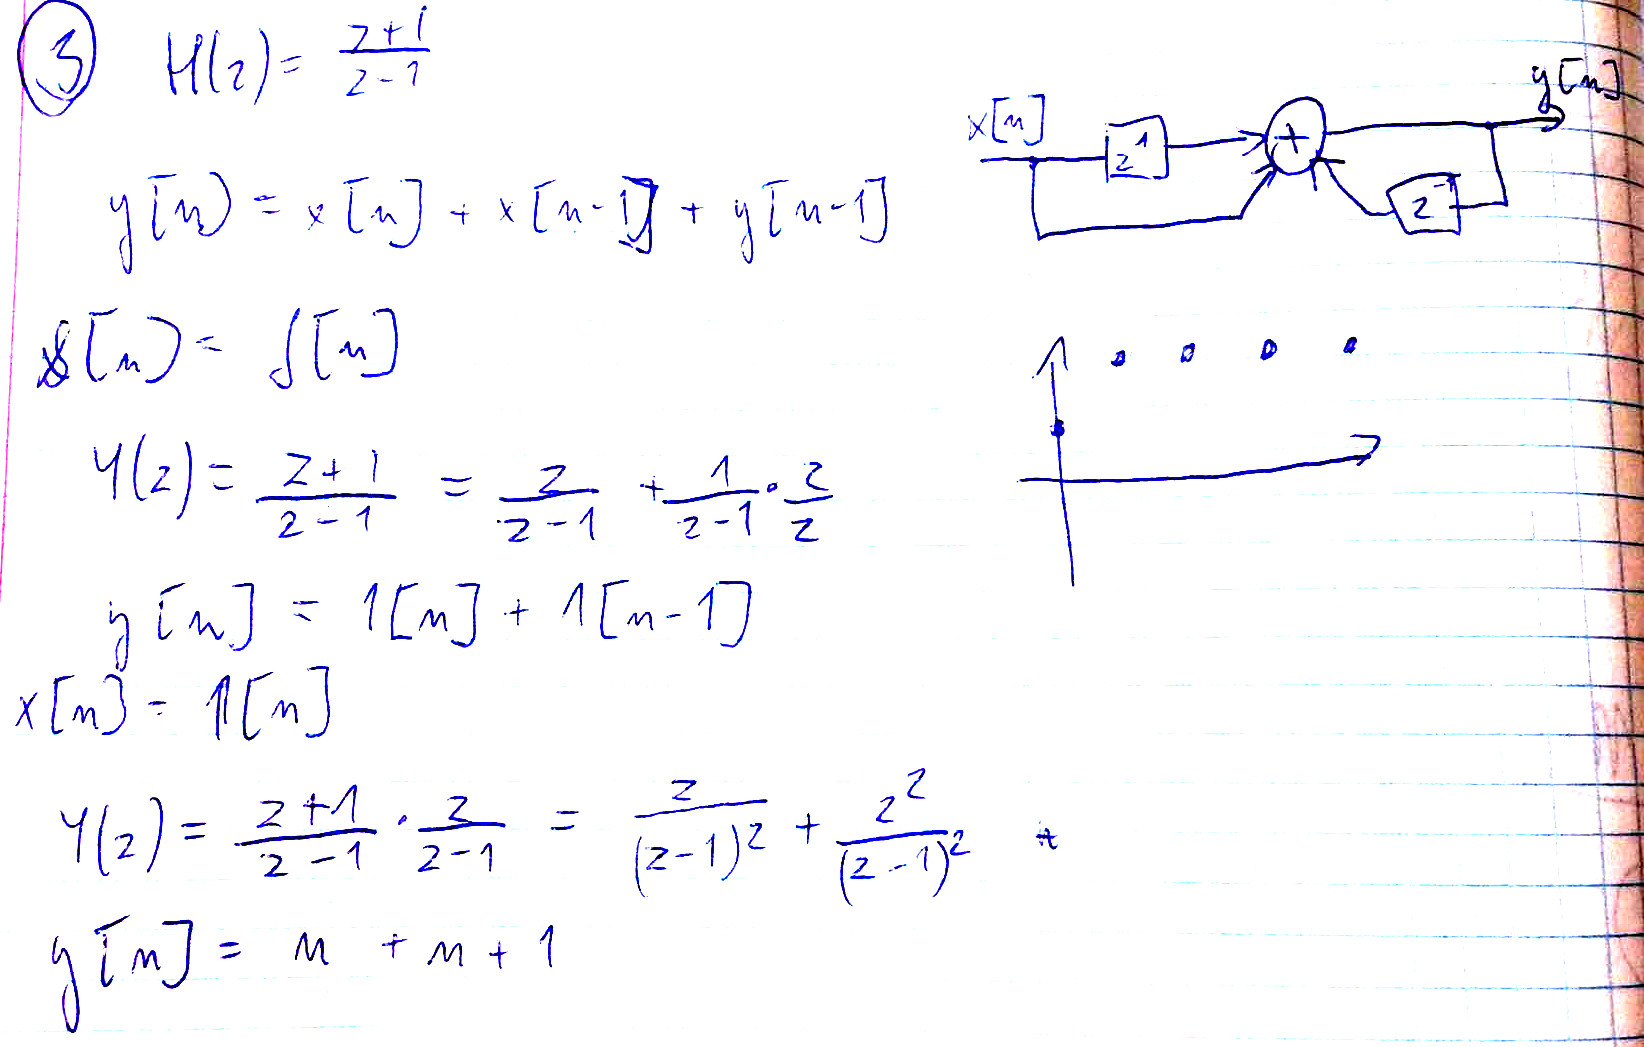 3 H(z) = (z+1)/(z-1)
x[n] z^1 + y[n] z^-1
y[n] = x[n] + x[n-1] + y[n-1]
x[n] = δ[n]
Y(z) = (z+1)/(z-1) = z/(z-1) + 1/(z-1) · z/z
y[n] = 1[n] + 1[n-1]
x[n] = 1[n]
Y(z) = (z+1)/(z-1) · z/(z-1) = z/(z-1)^2 + z^2/(z-1)^2 +
y[n] = n + n + 1